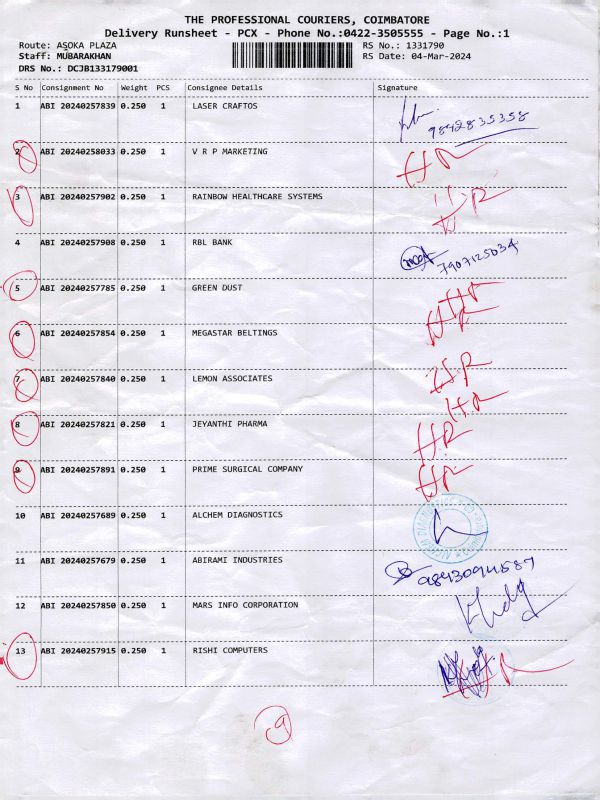 THE PROFESSIONAL COURIERS, COIMBATORE
Delivery Runsheet - PCX - Phone No.:0422-3505555 - Page No.:1
Route: ASOKA PLAZA RS No.: 1331790
Staff: MUBARAKHAN RS Date: 04-Mar-2024
DRS No.: DCJB133179001
S No Consignment No Weight PCS Consignee Details Signature
1 ABI 20240257839 0.250 1 LASER CRAFTOS
9842835358
2 ABI 20240258033 0.250 1 V R P MARKETING HR
3 ABI 20240257902 0.250 1 RAINBOW HEALTHCARE SYSTEMS
4 ABI 20240257908 0.250 1 RBL BANK
7907125034
5 ABI 20240257785 0.250 1 GREEN DUST
6 ABI 20240257854 0.250 1 MEGASTAR BELTINGS
7 ABI 20240257840 0.250 1 LEMON ASSOCIATES
8 ABI 20240257821 0.250 1 JEYANTHI PHARMA HR
9 ABI 20240257891 0.250 1 PRIME SURGICAL COMPANY HR
10 ABI 20240257689 0.250 1 ALCHEM DIAGNOSTICS
11 ABI 20240257679 0.250 1 ABIRAMI INDUSTRIES
12 ABI 20240257850 0.250 1 MARS INFO CORPORATION
13 ABI 20240257915 0.250 1 RISHI COMPUTERS
9